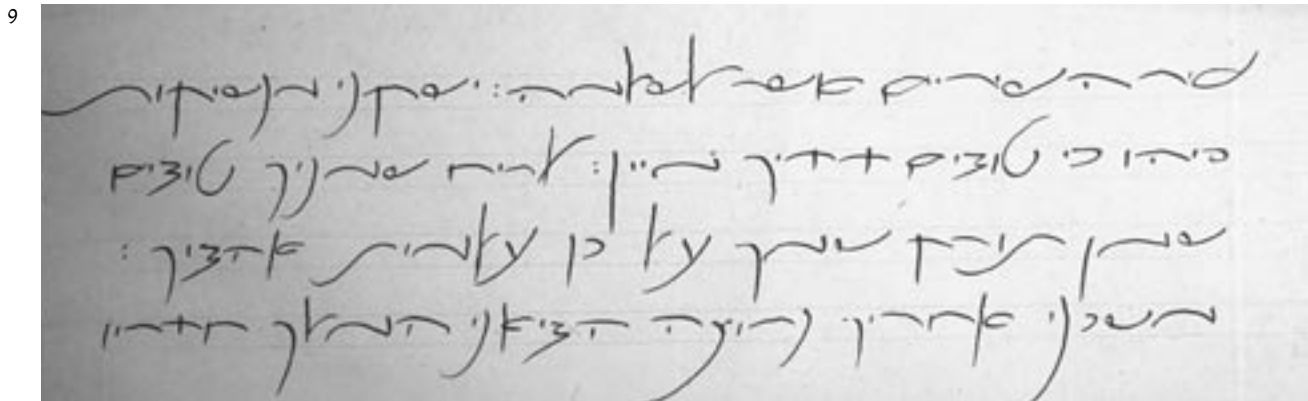 9
שיר השירים אשר לשלמה: ישקני מנשיקות
פיהו כי טובים דדיך מיין: לריח שמניך טובים
שמן תורק שמך על כן עלמות אהבוך :
משכני אחריך נרוצה הביאני המלך חדריו